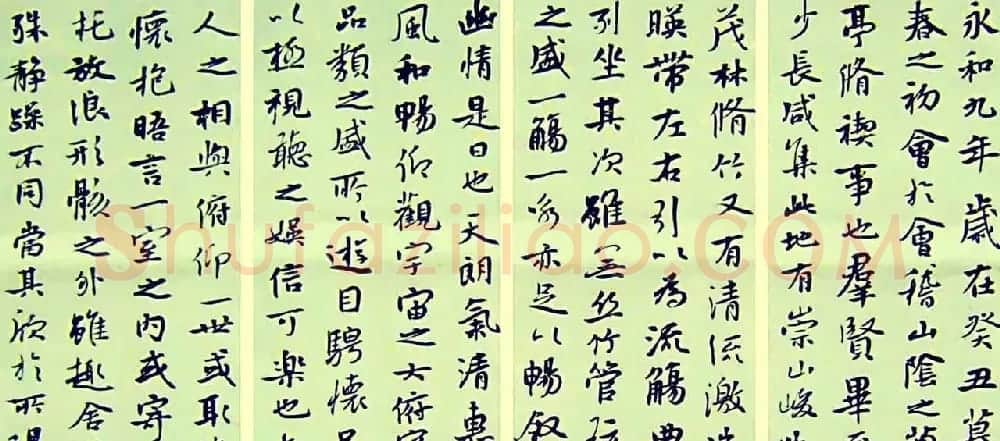 永和九年歲在癸丑
春之初會於會稽山陰之
亭脩禊事也羣賢畢
少長咸集此地有崇山峻
茂林脩竹又有清流激
暎帶左右引以為流觴
列坐其次雖無絲竹管
之盛一觴一詠亦足以暢叙
幽情是日也天朗氣清惠
風和暢仰觀宇宙之大俯
品類之盛所以遊目騁懷
以極視聽之娛信可樂也
人之相與俯仰一世或取
懷抱晤言一室之內或寄
托放浪形骸之外雖趣舍
殊静躁不同當其欣於所
Shufaziliao.com